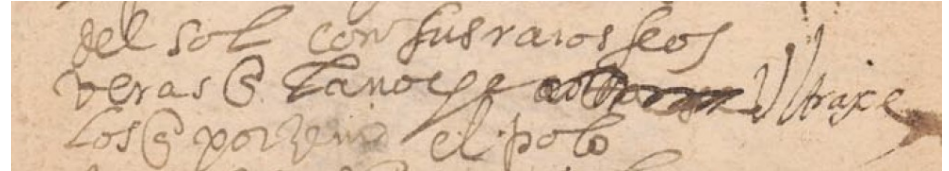 del sol con sus raios feos
veras q̃ la noche ultraxe
los q̃ por reino el polo